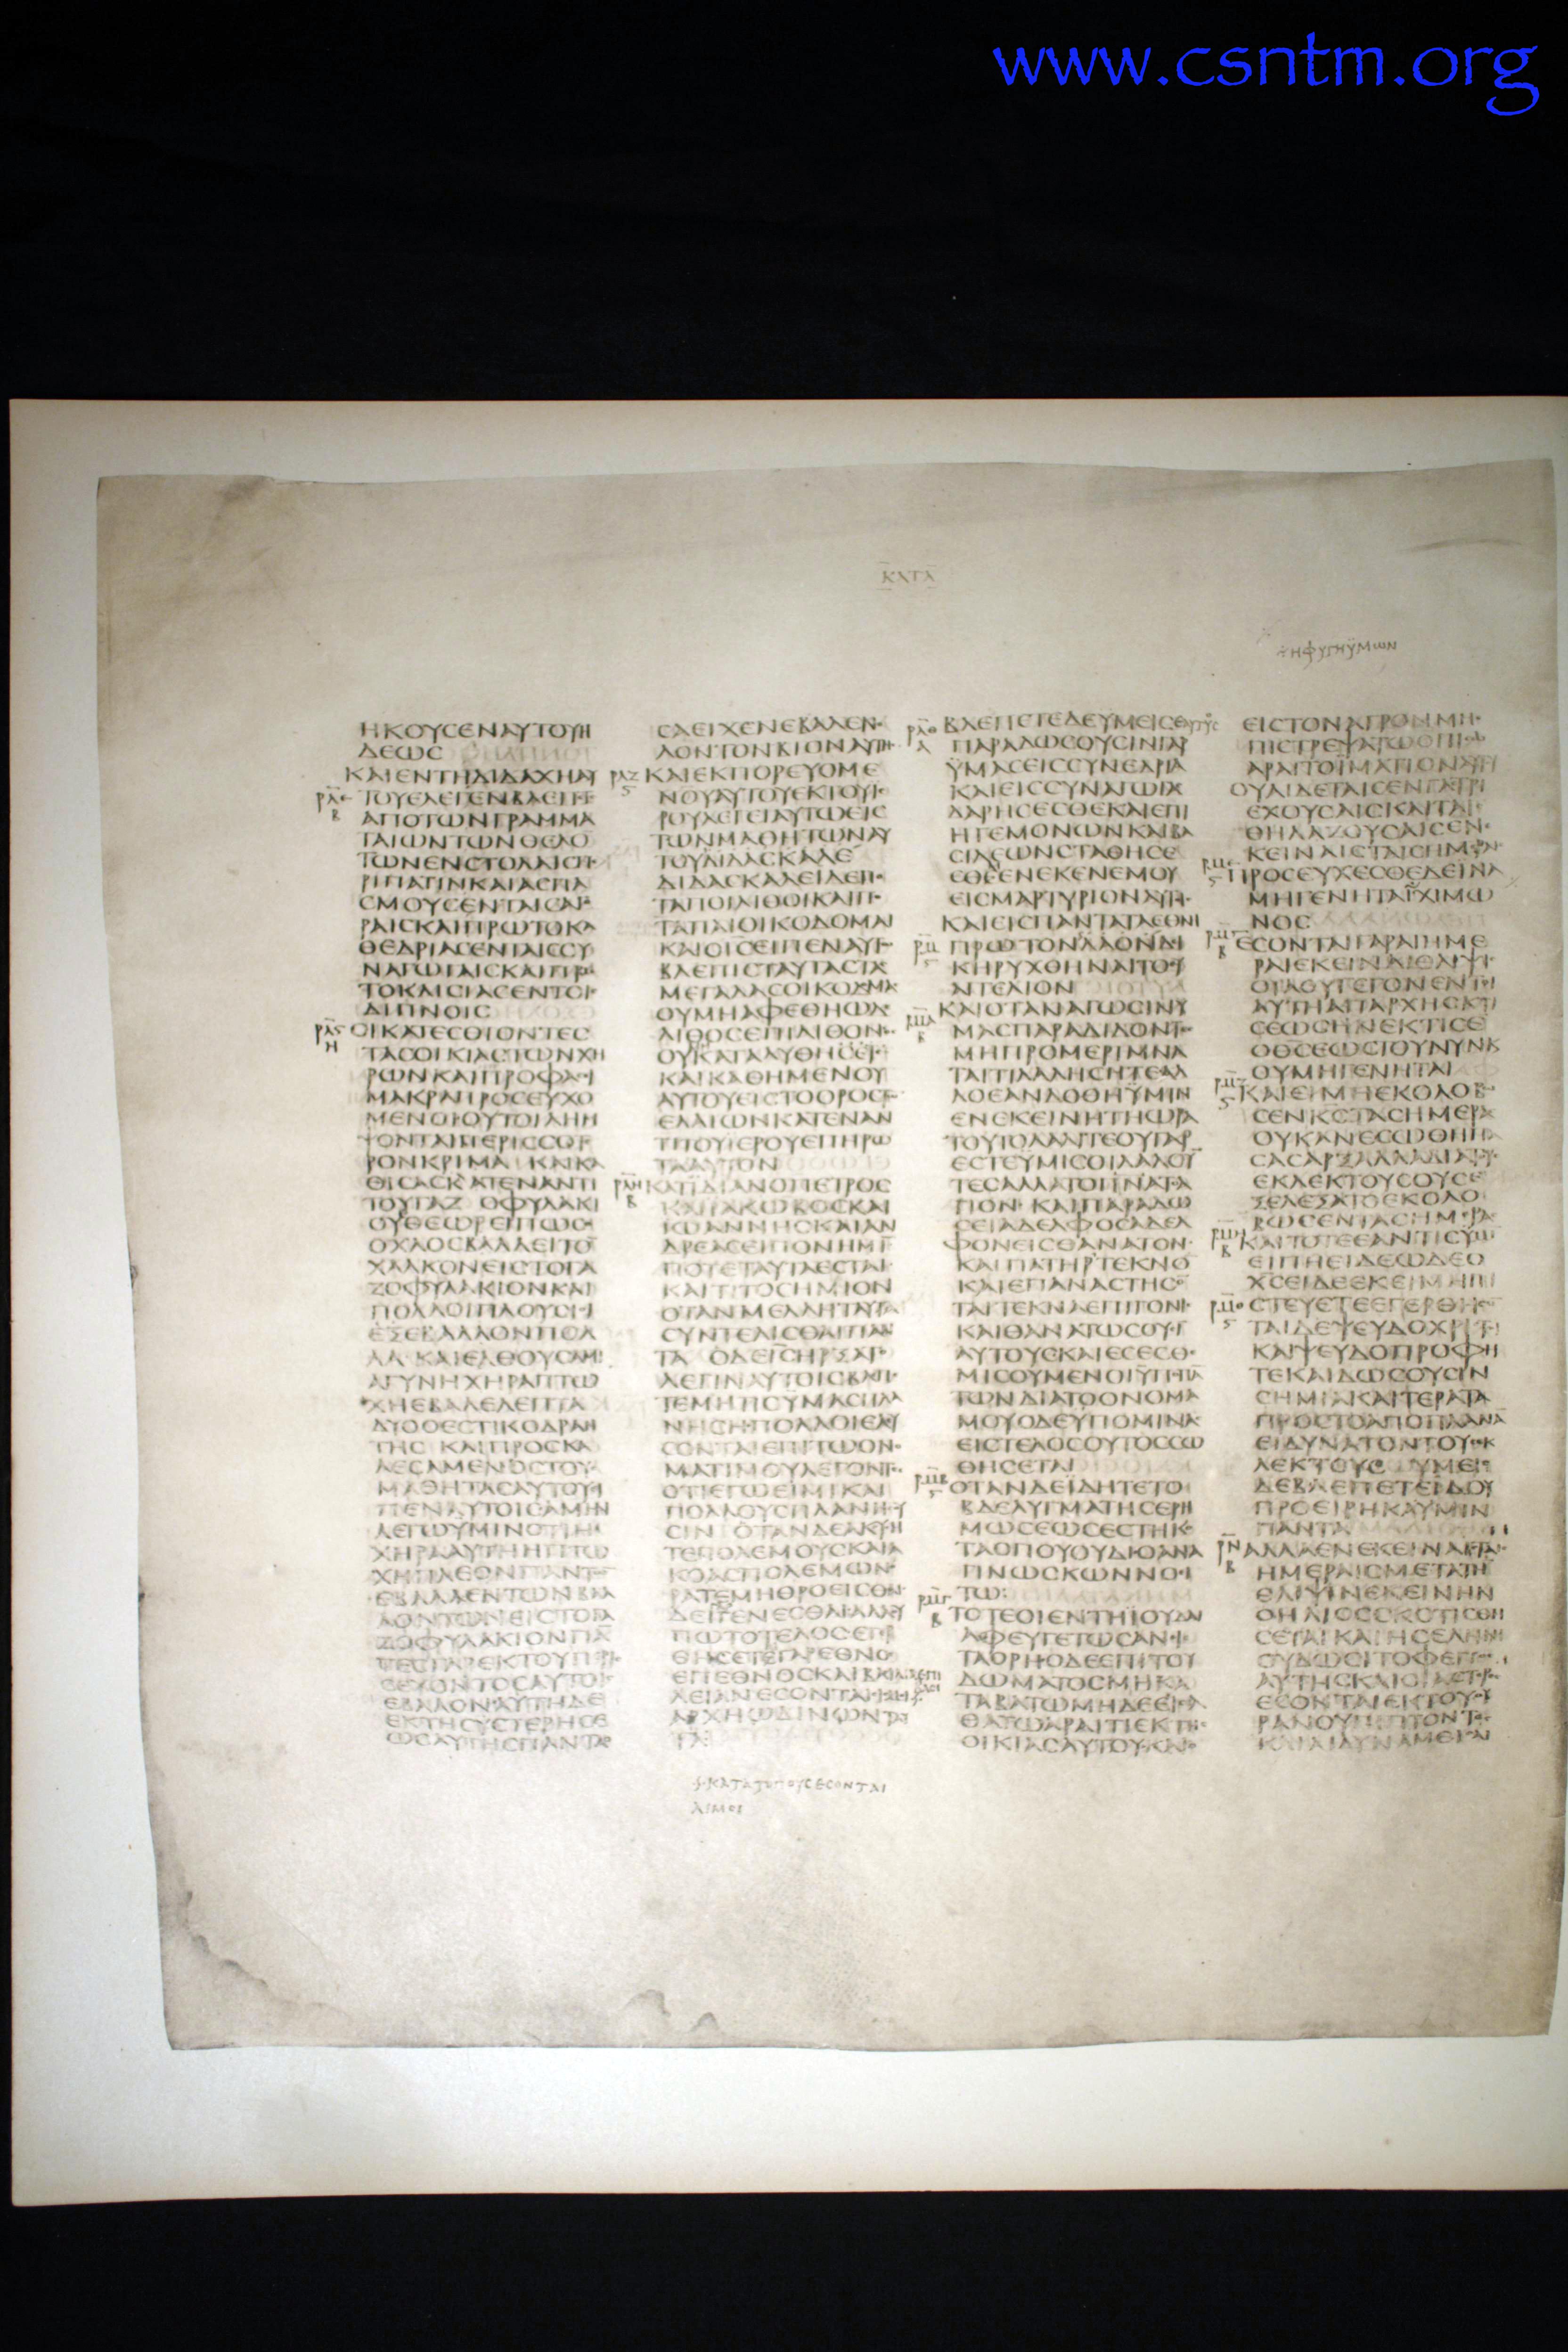 www.csntm.org
ΚΑΤΑ
ΗΦΥΓΗΫΜΩΝ
ΗΚΟΥΣΕΝΑΥΤΟΥΗ
ΔΕΩΣ
ΚΑΙΕΝΤΗΔΙΔΑΧΗΑΥ
ΤΟΥΕΛΕΓΕΝΒΛΕΠΕ
ΑΠΟΤΩΝΓΡΑΜΜΑ
ΤΑΙΩΝΤΩΝΘΕΛΟ
ΤΩΝΕΝΣΤΟΛΑΙΣΠΕ
ΡΙΠΑΤΙΝΚΑΙΑΣΠΑ
ΣΜΟΥΣΕΝΤΑΙΣΑΓ
ΡΑΙΣΚΑΙΠΡΩΤΟΚΑ
ΘΕΔΡΙΑΣΕΝΤΑΙΣΣΥ
ΝΑΓΩΓΑΙΣΚΑΙΠΡ
ΤΟΚΛΙΣΙΑΣΕΝΤΟΙ
ΔΙΠΝΟΙΣ
ΟΙΚΑΤΕΣΘΙΟΝΤΕΣ
ΤΑΣΟΙΚΙΑΣΤΩΝΧΗ
ΡΩΝΚΑΙΠΡΟΦΑΣΙ
ΜΑΚΡΑΠΡΟΣΕΥΧΟ
ΜΕΝΟΙΟΥΤΟΙΛΗΜ
ΨΟΝΤΑΙΠΕΡΙΣΣΟΤ
ΡΟΝΚΡΙΜΑ ΚΑΙΚΑ
ΘΙΣΑΣΚΑΤΕΝΑΝΤΙ
ΤΟΥΓΑΖΟΦΥΛΑΚΙ
ΟΥΘΕΩΡΕΙΠΩΣΟ
ΟΧΛΟΣΒΑΛΛΕΙΤΟ
ΧΑΛΚΟΝΕΙΣΤΟΓΑ
ΖΟΦΥΛΑΚΙΟΝΚΑΙ
ΠΟΛΛΟΙΠΛΟΥΣΙΟΙ
ΕΞΕΒΑΛΛΟΝΠΟΛ
ΛΑ ΚΑΙΕΛΘΟΥΣΑΜΙ
ΑΓΥΝΗΧΗΡΑΠΤΩ
ΧΗΕΒΑΛΕΛΕΠΤΑ
ΔΥΟΟΕΣΤΙΚΟΔΡΑΝ
ΤΗΣ ΚΑΙΠΡΟΣΚΑ
ΛΕΣΑΜΕΝΟΣΤΟΥ
ΜΑΘΗΤΑΣΑΥΤΟΥΕΙ
ΠΕΝΑΥΤΟΙΣΑΜΗΝ
ΛΕΓΩΫΜΙΝΟΤΙΗ
ΧΗΡΑΑΥΤΗΗΠΤΩ
ΧΗΠΛΕΟΝΠΑΝΤ
ΕΒΑΛΕΝΤΩΝΒΑ
ΛΟΝΤΩΝΕΙΣΤΟΓΑ
ΖΟΦΥΛΑΚΙΟΝΠΑ
ΤΕΣΓΑΡΕΚΤΟΥΠΕΡΙ
ΣΕΥΟΝΤΟΣΑΥΤΟΙ
ΕΒΑΛΟΝΑΥΤΗΔΕ
ΕΚΤΗΣΥΣΤΕΡΗΣΕ
ΩΣΑΥΤΗΣΠΑΝΤΑ
ΣΑΕΙΧΕΝΕΒΑΛΕΝ
ΛΟΝΤΟΝΒΙΟΝΑΥΤΗ
ΚΑΙΕΚΠΟΡΕΥΟΜΕ
ΝΟΥΑΥΤΟΥΕΚΤΟΥΙ
ΡΟΥΛΕΓΕΙΑΥΤΩΕΙΣ
ΤΩΝΜΑΘΗΤΩΝΑΥ
ΤΟΥΔΙΔΑΣΚΑΛΕ
ΔΙΔΑΣΚΑΛΕΙΔΕΠ
ΤΑΠΟΙΛΙΘΟΙΚΑΙΠ
ΤΑΠΑΙΟΙΚΟΔΟΜΑΙ
ΚΑΙΟΙΣΕΙΠΕΝΑΥΤ
ΒΛΕΠΙΣΤΑΥΤΑΣΤΑ
ΜΕΓΑΛΑΣΟΙΚΟΔΜΑ
ΟΥΜΗΑΦΕΘΗΩΔΕ
ΛΙΘΟΣΕΠΙΛΙΘΟΝ
ΟΥΚΑΤΑΛΥΘΗΣΕΤ
ΚΑΙΚΑΘΗΜΕΝΟΥ
ΑΥΤΟΥΕΙΣΤΟΟΡΟΣΤ
ΕΛΑΙΩΝΚΑΤΕΝΑΝ
ΤΙΤΟΥΙΕΡΟΥΕΠΗΡΩ
ΤΑΑΥΤΟΝ
ΚΑΤΙΔΙΑΝΟΠΕΤΡΟΣ
ΚΑΙΙΑΚΩΒΟΣΚΑΙ
ΙΩΑΝΝΗΣΚΑΙΑΝ
ΔΡΕΑΣΕΙΠΟΝΗΜΙ
ΠΟΤΕΤΑΥΤΑΕΣΤΑΙ
ΚΑΙΤΙΤΟΣΗΜΙΟΝ
ΟΤΑΝΜΕΛΛΗΤΑΥΤΑ
ΣΥΝΤΕΛΙΣΘΑΙΠΑΝ
ΤΑ ΟΔΕΙΣΗΡΞΑΤ
ΛΕΓΙΝΑΥΤΟΙΣΒΛΕΠ
ΤΕΜΗΤΙΣΫΜΑΣΠΛΑ
ΝΗΣΗΠΟΛΛΟΙΕΛΕΥ
ΣΟΝΤΑΙΕΠΙΤΩΟΝ
ΜΑΤΙΜΟΥΛΕΓΟΝΤ
ΟΤΙΕΓΩΕΙΜΙΚΑΙ
ΠΟΛΛΟΥΣΠΛΑΝΗΣΥ
ΣΙΝ ΟΤΑΝΔΕΑΚΟΥΗ
ΤΕΠΟΛΕΜΟΥΣΚΑΙΑ
ΚΟΑΣΠΟΛΕΜΩΝ
ΡΑΤΕΜΗΘΡΟΕΙΣΘΕ
ΔΕΙΓΕΝΕΣΘΑΙΑΛΛΟΥ
ΠΩΤΟΤΕΛΟΣΕΓΕΡ
ΘΗΣΕΤΕΓΑΡΕΘΝΟ
ΕΠΕΘΝΟΣΚΑΙΒΑΣΙΛΕΙΑΕΠΙ
ΛΕΙΑΝΕΣΟΝΤΑΙ
ΑΡΧΗΩΔΙΝΩΝΤΑΥ
ΤΑ
ΚΑΤΑΤΟΠΟΥΣΕΣΟΝΤΑΙ
ΛΙΜΟΙ
ΒΛΕΠΕΤΕΔΕΥΜΕΙΣΕΑΥΤΟΥΣ
ΠΑΡΑΔΩΣΟΥΣΙΝΓΑΡ
ΫΜΑΣΕΙΣΣΥΝΕΔΡΙΑ
ΚΑΙΕΙΣΣΥΝΑΓΩΓΑΣ
ΔΑΡΗΣΕΣΘΕΚΑΙΕΠΙ
ΗΓΕΜΟΝΩΝΚΑΙΒΑ
ΣΙΛΕΩΝΣΤΑΘΗΣΕ
ΣΘΕΕΝΕΚΕΝΕΜΟΥ
ΕΙΣΜΑΡΤΥΡΙΟΝΑΥΤΟΙ
ΚΑΙΕΙΣΠΑΝΤΑΤΑΕΘΝΗ
ΠΡΩΤΟΝΛΑΟΝΔΕΙ
ΚΗΡΥΧΘΗΝΑΙΤΟΕΥ
ΑΓΓΕΛΙΟΝ
ΚΑΙΟΤΑΝΑΓΩΣΙΝΥ
ΜΑΣΠΑΡΑΔΙΔΟΝΤ
ΜΗΠΡΟΜΕΡΙΜΝΑ
ΤΑΙΤΙΛΑΛΗΣΗΤΕΑΛ
ΛΟΕΑΝΔΟΘΗΫΜΙΝ
ΕΝΕΚΕΙΝΗΤΗΩΡΑ
ΤΟΥΤΟΛΑΛΙΤΕΟΥΓΑΡ
ΕΣΤΕΫΜΙΣΟΙΛΑΛΟΥ
ΤΕΣΑΛΛΑΤΟΠΝΑΤΑ
ΓΙΟΝ ΚΑΙΠΑΡΑΔΩ
ΣΕΙΑΔΕΛΦΟΣΑΔΕΛ
ΦΟΝΕΙΣΘΑΝΑΤΟΝ
ΚΑΙΠΑΤΗΡΤΕΚΝΟ
ΚΑΙΕΠΑΝΑΣΤΗΣΟ
ΤΑΙΤΕΚΝΑΕΠΙΓΟΝΙ
ΚΑΙΘΑΝΑΤΩΣΟΥΣΙ
ΑΥΤΟΥΣΚΑΙΕΣΕΣΘΕ
ΜΙΣΟΥΜΕΝΟΙΫΠΟΠΑ
ΤΩΝΔΙΑΤΟΟΝΟΜΑ
ΜΟΥΟΔΕΫΠΟΜΙΝΑΣ
ΕΙΣΤΕΛΟΣΟΥΤΟΣΣΩ
ΘΗΣΕΤΑΙ
ΟΤΑΝΔΕΙΔΗΤΕΤΟ
ΒΔΕΛΥΓΜΑΤΗΣΕΡΗ
ΜΩΣΕΩΣΕΣΤΗΚ
ΤΑΟΠΟΥΟΥΔΙΟΑΝΑ
ΓΙΝΩΣΚΩΝΝΟΕΙ
ΤΩ:
ΤΟΤΕΟΙΕΝΤΗΙΟΥΔΑΙ
ΑΦΕΥΓΕΤΩΣΑΝΕΙ
ΤΑΟΡΗΟΔΕΕΠΙΤΟΥ
ΔΩΜΑΤΟΣΜΗΚΑ
ΤΑΒΑΤΩΜΗΔΕΕΙΣΕΛ
ΘΑΤΩΑΡΑΙΤΙΕΚΤΗΣ
ΟΙΚΙΑΣΑΥΤΟΥΚΑΙΟ
ΕΙΣΤΟΝΑΓΡΟΝΜΗΕ
ΠΙΣΤΡΕΨΑΤΩΟΠΙΣΩ
ΑΡΑΙΤΟΪΜΑΤΙΟΝΑΥΤΟΥ
ΟΥΑΙΔΕΤΑΙΣΕΝΓΑΣΤΡΙ
ΕΧΟΥΣΑΙΣΚΑΙΤΑΙ
ΘΗΛΑΖΟΥΣΑΙΣΕΝΕ
ΚΕΙΝΑΙΣΤΑΙΣΗΜΕΡΑΙ
ΠΡΟΣΕΥΧΕΣΘΕΔΕΙΝΑ
ΜΗΓΕΝΗΤΑΙΧΙΜΩ
ΝΟΣ
ΕΣΟΝΤΑΙΓΑΡΑΙΗΜΕ
ΡΑΙΕΚΕΙΝΑΙΘΛΙΨΙ
ΟΙΑΟΥΓΕΓΟΝΕΝΤΟΙ
ΑΥΤΗΑΠΑΡΧΗΣΚΤΙ
ΣΕΩΣΗΝΕΚΤΙΣΕ
ΟΘΣΕΩΣΤΟΥΝΥΝΚ
ΟΥΜΗΓΕΝΗΤΑΙ
ΚΑΙΕΙΜΗΕΚΟΛΟΒΩ
ΣΕΝΚΣΤΑΣΗΜΕΡΑ
ΟΥΚΑΝΕΣΩΘΗΠΑ
ΣΑΣΑΡΞΑΛΛΑΔΙΑΤΟΥ
ΕΚΛΕΚΤΟΥΣΟΥΣΕ
ΞΕΛΕΞΑΤΟΕΚΟΛΟ
ΒΩΣΕΝΤΑΣΗΜΕΡΑ
ΚΑΙΤΟΤΕΕΑΝΤΙΣΫΜΙ
ΕΙΠΗΕΙΔΕΩΔΕΟ
ΧΣΕΙΔΕΕΚΕΙΜΗΠΙ
ΣΤΕΥΕΤΕΕΓΕΡΘΗΣ
ΤΑΙΔΕΨΕΥΔΟΧΡΙΣΤΟΙ
ΚΑΙΨΕΥΔΟΠΡΟΦΗ
ΤΕΚΑΙΔΩΣΟΥΣΙΝ
ΣΗΜΙΑΚΑΙΤΕΡΑΤΑ
ΠΡΟΣΤΟΑΠΟΠΛΑΝΑ
ΕΙΔΥΝΑΤΟΝΤΟΥΣΕΚ
ΛΕΚΤΟΥΣ ΥΜΕΙΣ
ΔΕΒΛΕΠΕΤΕΙΔΟΥ
ΠΡΟΕΙΡΗΚΑΫΜΙΝ
ΠΑΝΤΑ
ΑΛΛΑΕΝΕΚΕΙΝΑΙΣΤΑΙ
ΗΜΕΡΑΙΣΜΕΤΑΤΗ
ΘΛΙΨΙΝΕΚΕΙΝΗΝ
ΟΗΛΙΟΣΣΚΟΤΙΣΘΗ
ΣΕΤΑΙΚΑΙΗΣΕΛΗΝΗ
ΟΥΔΩΣΙΤΟΦΕΓΓΟΣ
ΑΥΤΗΣΚΑΙΟΙΑΣΤΕΡΕ
ΕΣΟΝΤΑΙΕΚΤΟΥΟΥ
ΡΑΝΟΥΠΙΠΤΟΝΤΕ
ΚΑΙΑΙΔΥΝΑΜΕΙΣΑΙ